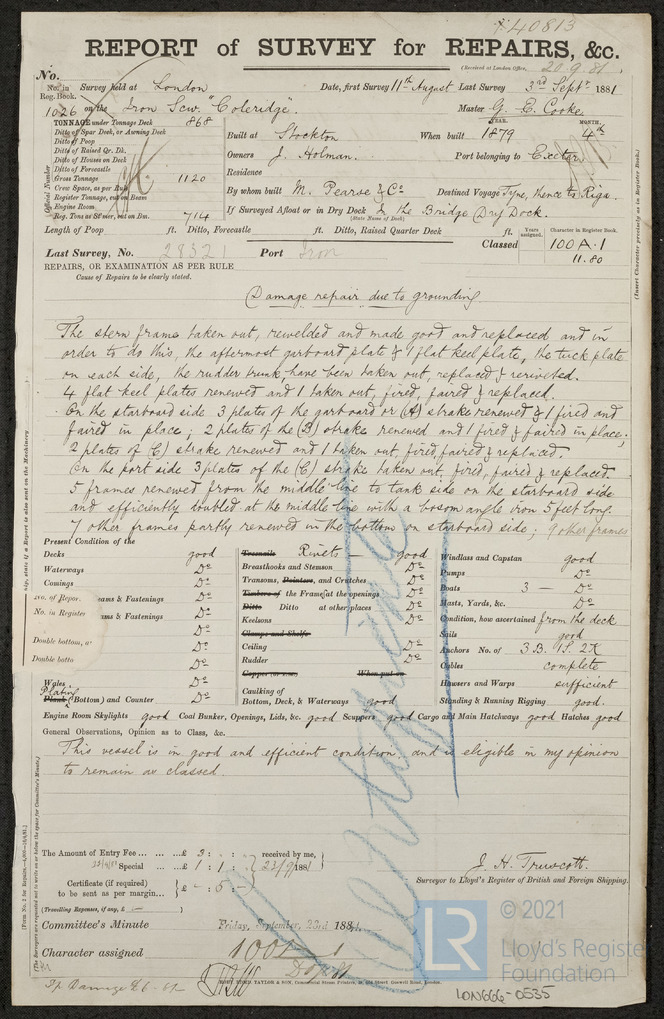 *40813
REPORT of SURVEY for REPAIRS, &c.
(Received at London Office, 20.9.81.
No.
No. in Reg. Book. Survey held at London Date, first Survey 11th August Last Survey 3rd Septr 1881
1026 on the Iron Scw. "Coleridge". Master G. E. Cooke.
TONNAGE under Tonnage Deck 868
Ditto of Spar Deck, or Awning Deck
Ditto of Poop
Ditto of Raised Qr. Dk.
Ditto of Houses on Deck
Ditto of Forecastle
Gross Tonnage 1120
Crew Space, as per Rule
Register Tonnage, cut on Beam
Engine Room
Reg. Tons as St'mer, cut on Bm. 714
Official Number
YEAR. MONTH.
Built at Stockton When built 1879 4th
Owners J. Holman. Port belonging to Exeter
Residence
By whom built M. Pearse & Co Destined Voyage Tyne, thence to Riga.
If Surveyed Afloat or in Dry Dock In the Bridge Dry Dock.
(State Name of Dock)
Length of Poop ft. Ditto, Forecastle ft. Ditto, Raised Quarter Deck ft.
Years assigned. Character in Register Book.
Last Survey, No. 28321 Port Iron Classed 100 A.1
11.80
(Insert Character precisely as in Register Book.)
REPAIRS, OR EXAMINATION AS PER RULE
Cause of Repairs to be clearly stated.
Damage repair due to grounding.
The stern frame taken out, rewelded and made good and replaced and in
order to do this, the aftermost garboard plate & 1 flat keel plate, the tuck plate
on each side, the rudder trunk have been taken out, replaced & reriveted.
4 flat keel plates renewed and 1 taken out, fired, faired & replaced.
On the starboard side 3 plates of the garboard or (A) strake renewed & 1 fired and
faired in place; 2 plates of the (B) strake renewed and 1 fired & faired in place;
2 plates of (C) strake renewed and 1 taken out, fired, faired & replaced.
On the port side 3 plates of the (C) strake taken out, fired, faired & replaced.
5 frames renewed from the middle line to tank side on the starboard side
and efficiently doubled at the middle line with a bosom angle iron 5 feet long.
7 other frames partly renewed in the bottom on starboard side; 9 other frames
Present Condition of the
Decks good
Waterways Do
Comings Do
ams & Fastenings Do
ms & Fastenings Do
No. of Repor.
No. in Register
Double bottom, a
Double botto
Do
Do
Wales Do
Plating
Plank (Bottom) and Counter Do
Treenails Rivets — good
Breasthooks and Stemson Do
Transoms, Pointers, and Crutches Do
Timbers of the Frame at the openings Do
Ditto Ditto at other places Do
Keelsons Do
Clamps and Shelfs
Ceiling Do
Rudder Do
Copper When put on
Caulking of
Bottom, Deck, & Waterways good
Windlass and Capstan good
Pumps Do
Boats 3 — Do
Masts, Yards, &c. Do
Condition, how ascertained from the deck
Sails good
Anchors No. of 3 B. 1S. 2K
Cables complete
Hawsers and Warps sufficient
Standing & Running Rigging good.
Engine Room Skylights good Coal Bunker, Openings, Lids, &c. good Scuppers good Cargo and Main Hatchways good Hatches good
General Observations, Opinion as to Class, &c.
This vessel is in good and efficient condition and is eligible in my opinion
to remain as classed.
The Amount of Entry Fee ... £ 3 : received by me,
Special ... £ 1 : 1 : 23/9/1881
Certificate (if required) to be sent as per margin... £ - : 5 : -
(Travelling Expenses, if any, £ —
J. H. Truscott.
Surveyor to Lloyd's Register of British and Foreign Shipping.
Committee's Minute Friday, September 23rd 1881.
Character assigned 100A 1
© 2021
LR
Lloyd's Register
Foundation
LON666-0535